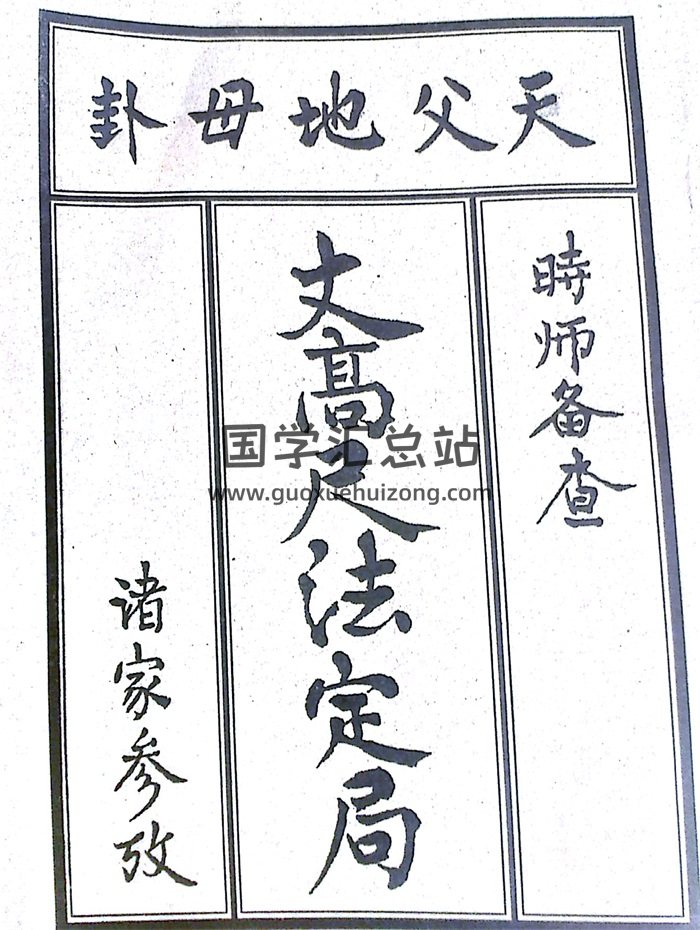 天父地母卦
時师备查
丈高尺法定局
诸家参攷
国学汇总站
www.guoxuehuizong.com